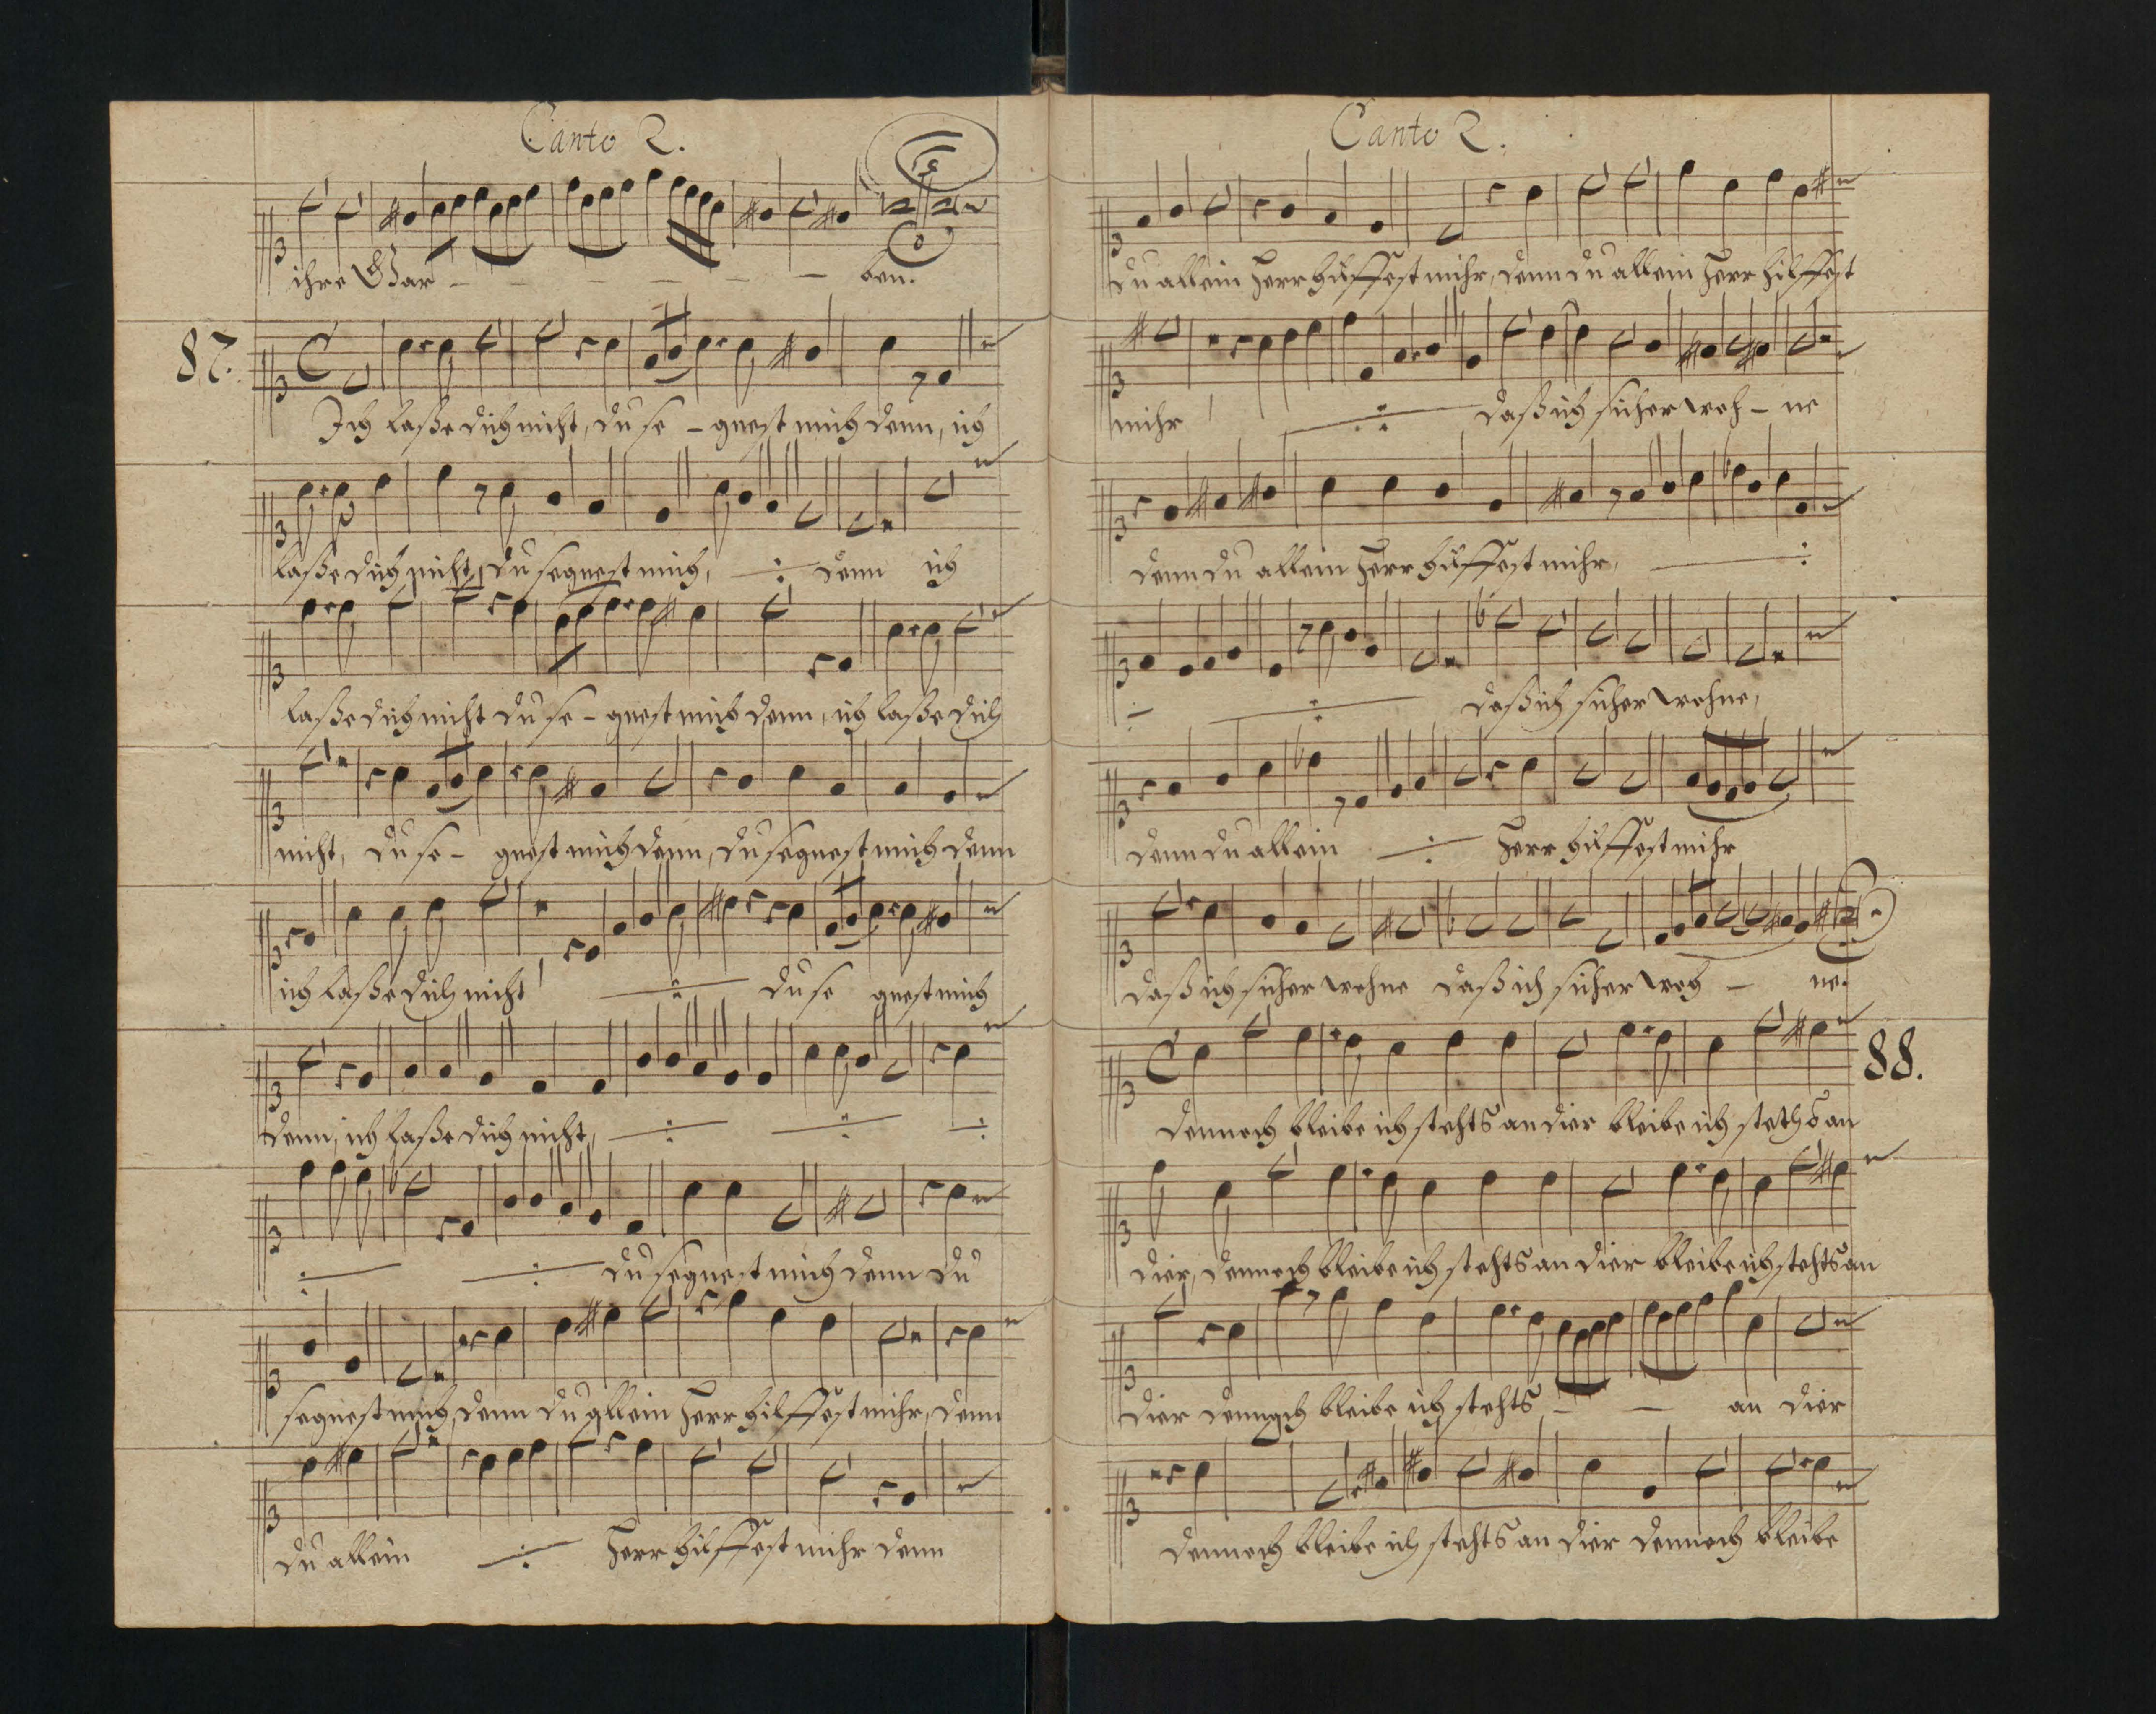 Canto 2.
ihre Gar - - - - - - ben.
87.
Ich laße dich nicht, du se - gnest mich denn, ich
laße dich nicht, du segnest mich, denn ich
laße dich nicht du se - gnest mich denn, ich laße dich
nicht, du se - gnest mich denn, du segnest mich denn
ich laße dich nicht du se gnest mich
denn, ich laße dich nicht,
du segnest mich denn du
segnest mich, denn du allein Herr hilffest mihr, denn
du allein Herr hilffest mihr denn
Canto 2.
du allein Herr hilffest mihr, denn du allein Herr hilffest
mihr daß ich sicher woh - ne
denn du allein Herr hilffest mihr,
daß ich sicher wohne,
denn du allein Herr hilffest mihr
daß ich sicher wohne daß ich sicher woh - ne.
88.
Dennoch bleibe ich stehts an dier bleibe ich steths an
dier, dennoch bleibe ich stehts an dier bleibe ich stehts an
dier dennoch bleibe ich stehts - - an dier
dennoch bleibe ich stehts an dier dennoch bleibe